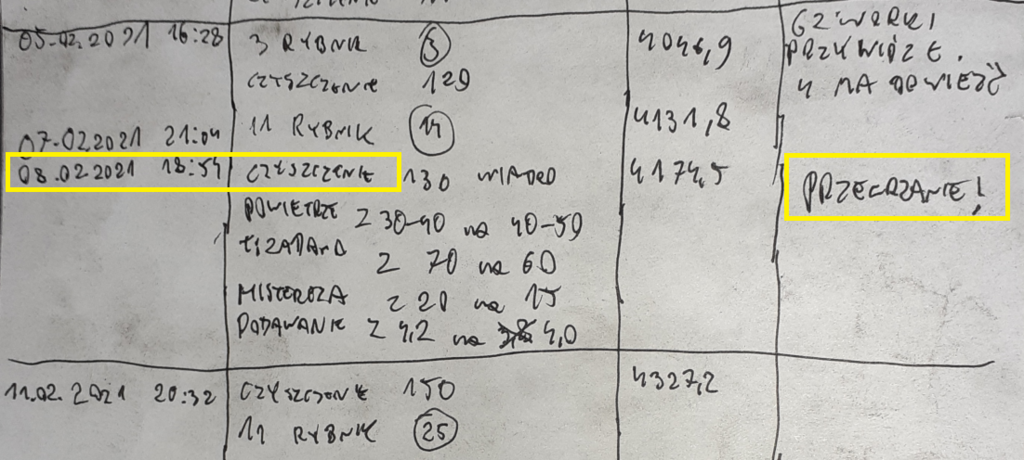 05.02.2021 16:28 3 RYBNIK 3 4046,9 62 WORKI
PRZYWIOZŁ.
CZYSZCZENIE 129 4 NA DOWIEŹĆ
07.02.2021 21:04 11 RYBNIK 14 4131,8
08.02.2021 18:54 CZYSZCZENIE 130 WIADRO 4174,5 PRZEGRZANIE!
POWIETRZE Z 30-40 na 40-50
Z 70 na 60
Z 20 na 15
PODAWANIE Z 4,2 na 4,0
11.02.2021 20:32 CZYSZCZENIE 150 4327,2
11 RYBNIK 25